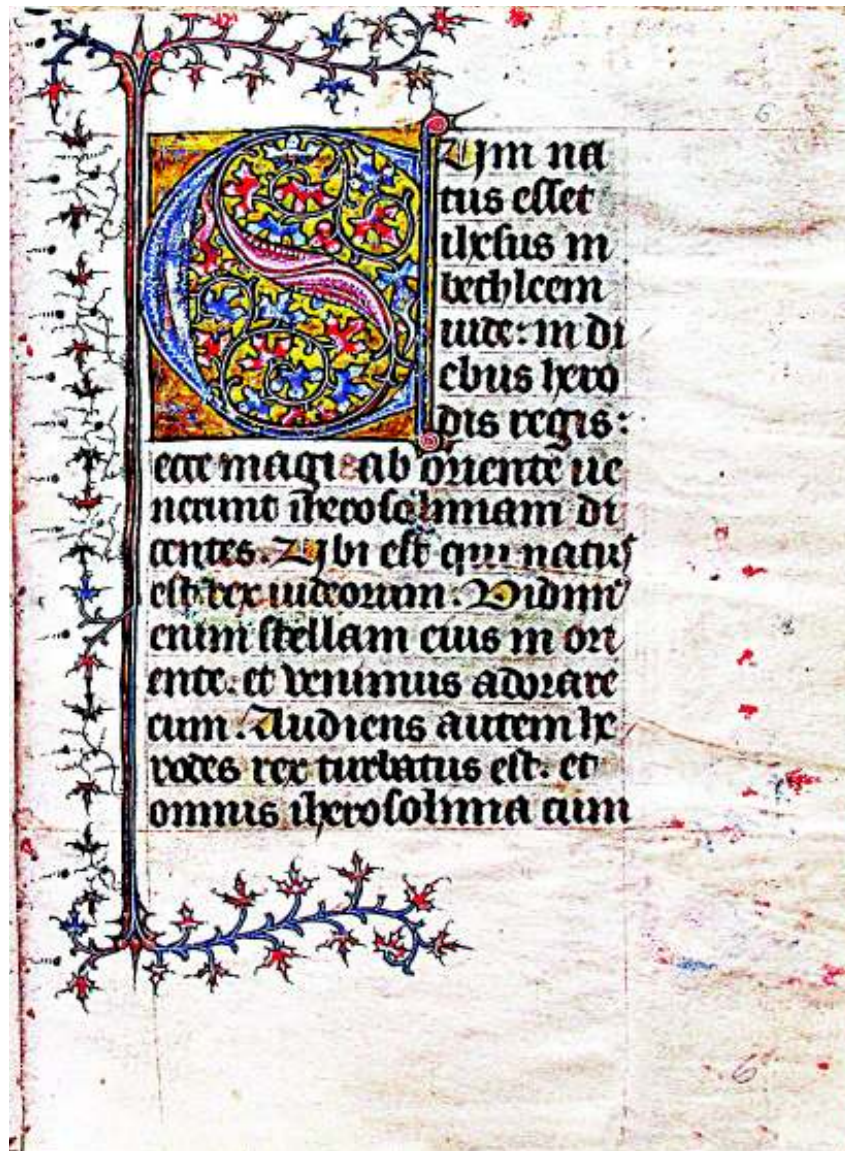 CUm na
tus esset
ihesus in
bethleem
iude: in di
ebus hero
dis regis:
ecce magi ab oriente ue
nerunt iherosolimam di
centes. Ubi est qui natus
est rex iudeorum. Vidim
enim stellam eius in ori
ente. et venimus adorare
eum. Audiens autem he
rodes rex turbatus est. et
omnis iherosolima cum
6
6